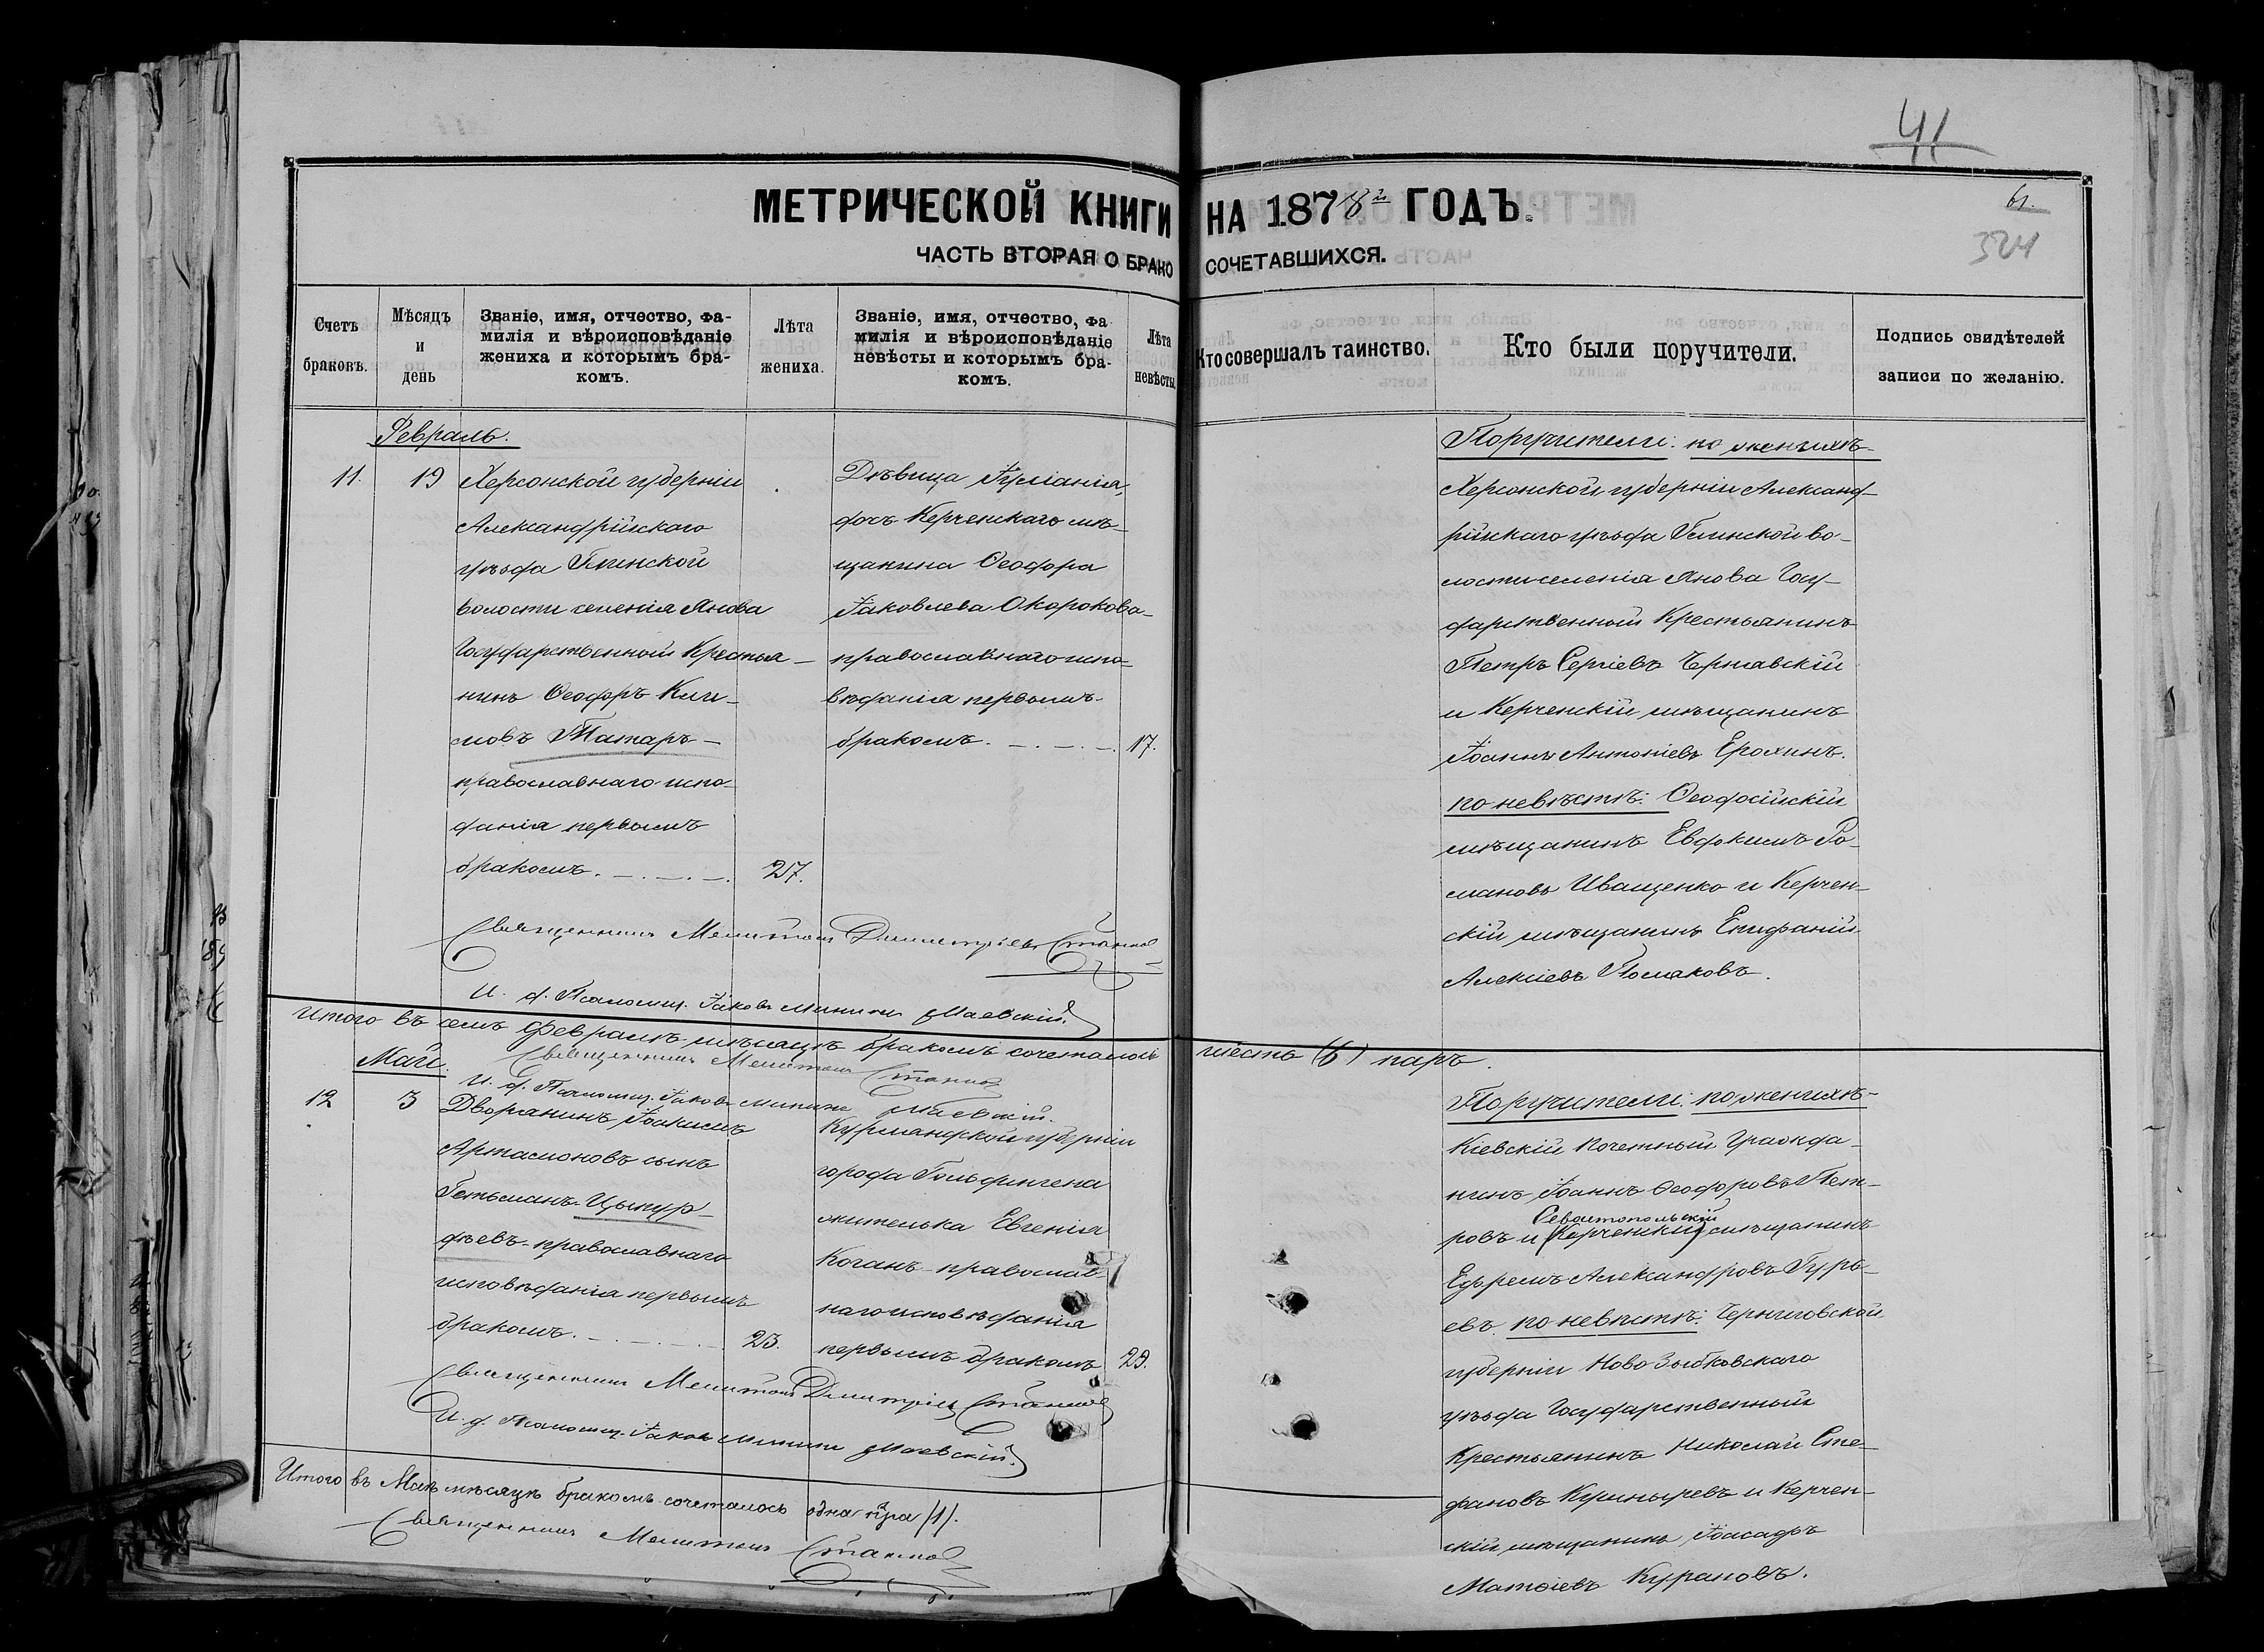 41
МЕТРИЧЕСКОЙ КНИГИ НА 1878й ГОДЪ.
61.
ЧАСТЬ ВТОРАЯ О БРАКОСОЧЕТАВШИХСЯ.
Счетъ браковъ.
Мѣсяцъ и день
Званіе, имя, отчество, фа-
милія и вѣроисповѣданіе
жениха и которымъ бра-
комъ.
Лѣта жениха.
Званіе, имя, отчество, фа
милія и вѣроисповѣданіе
невѣсты и которымъ бра-
комъ.
Лѣта невѣсты
Кто совершалъ таинство.
Кто были поручители.
Подпись свидѣтелей
записи по желанію.
Февраль.
11.
19
Херсонской губерніи
Александрійскаго
уѣзда Глинской
волости селенія Янова
Государственный Крестья-
нинъ Ѳеодоръ Кли-
мовъ Татаръ-
православнаго испо-
данія первымъ
бракомъ.
27.
Дѣвица Іуліанія,
дочь Керченскаго мѣ-
щанина Ѳеодора
Іаковлева Окорокова-
православнаго испо-
вѣданія первымъ
бракомъ.
17.
Поручители: по женихѣ-
Херсонской губерніи Александ-
рійскаго уѣзда Глинской во-
лости селенія Янова Госу-
дарственный Крестьянинъ
Петръ Сергіевъ Чернавскій
и Керченскій мѣщанинъ
Іоаннъ Антоніевъ Ерохинъ.
по невѣстѣ: Ѳеодосійскій
мѣщанинъ Евдокимъ Ро-
мановъ Иващенко и Керчен-
скій мѣщанинъ Епифаній
Алексіевъ Поляковъ.
Священникъ Мелитонъ Димитріевъ
И. д. Псаломщ. Іаковъ Мининъ Маевскій.
Итого въ семъ Февралѣ мѣсяцѣ бракомъ сочеталось шесть (6) паръ.
Священникъ Мелитонъ
И. д. Псаломщ. Іаковъ Мининъ Маевскій.
Май.
12
3
Дворянинъ Іоакимъ
Артамоновъ сынъ
Гетьманъ-Цыпур-
дѣевъ-православнаго
исповѣданія первымъ
бракомъ.
23.
Курляндской губерніи
города Гольдингена
жителька Евгенія
Коганъ-православ-
наго исповѣданія
первымъ бракомъ
29.
Поручители: по женихѣ-
Кіевскій Почетный Гражда-
нинъ Іоаннъ Ѳеодоровъ Пет-
Севастопольскій
ровъ и (Керченскій) мѣщанинъ
Ефремъ Александровъ Гурь-
евъ. по невѣстѣ: Черниговской
губерніи Ново Зыбковскаго
уѣзда Государственный
Крестьянинъ Николай Сте-
фановъ и Керчен-
скій мѣщанинъ Іоасафъ
Матѳіевъ Курановъ.
Священникъ Мелитонъ Димитріевъ
И. д. Псаломщ. Іаковъ Мининъ Маевскій.
Итого въ Маѣ мѣсяцѣ бракомъ сочеталось одна пара (1).
Священникъ Мелитонъ